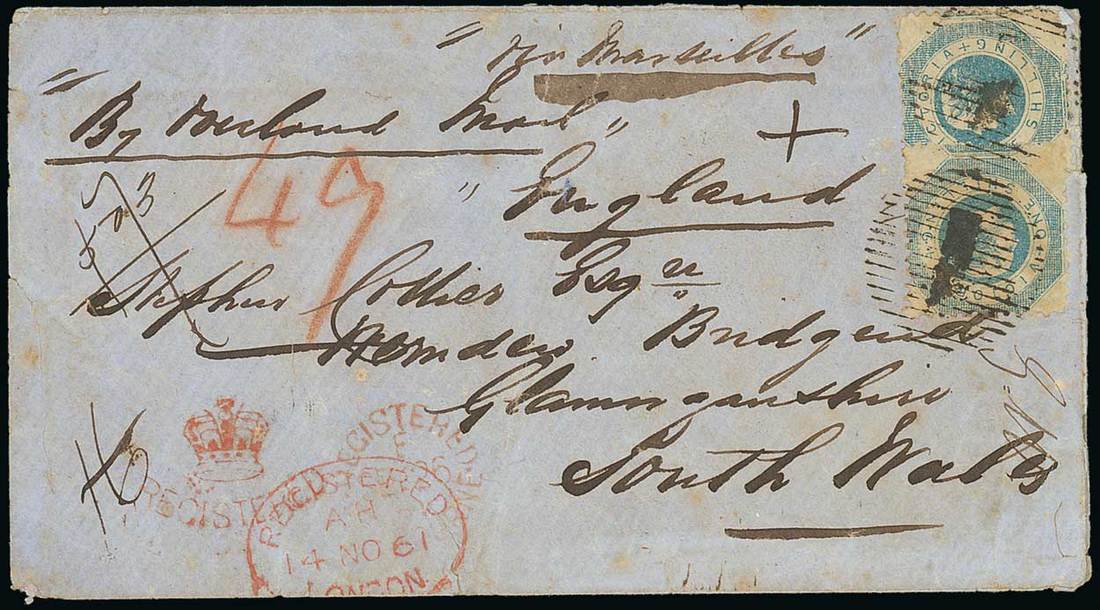 "via Marseilles"
"By Overland Mail"
"England
49
Stephen Collier Esq
Bridgend
Glamorganshire
South Wales
REGISTERED
REGISTERED
REGISTERED
AH
14 NO 61
LONDON
VICTORIA
ONE SHILLING